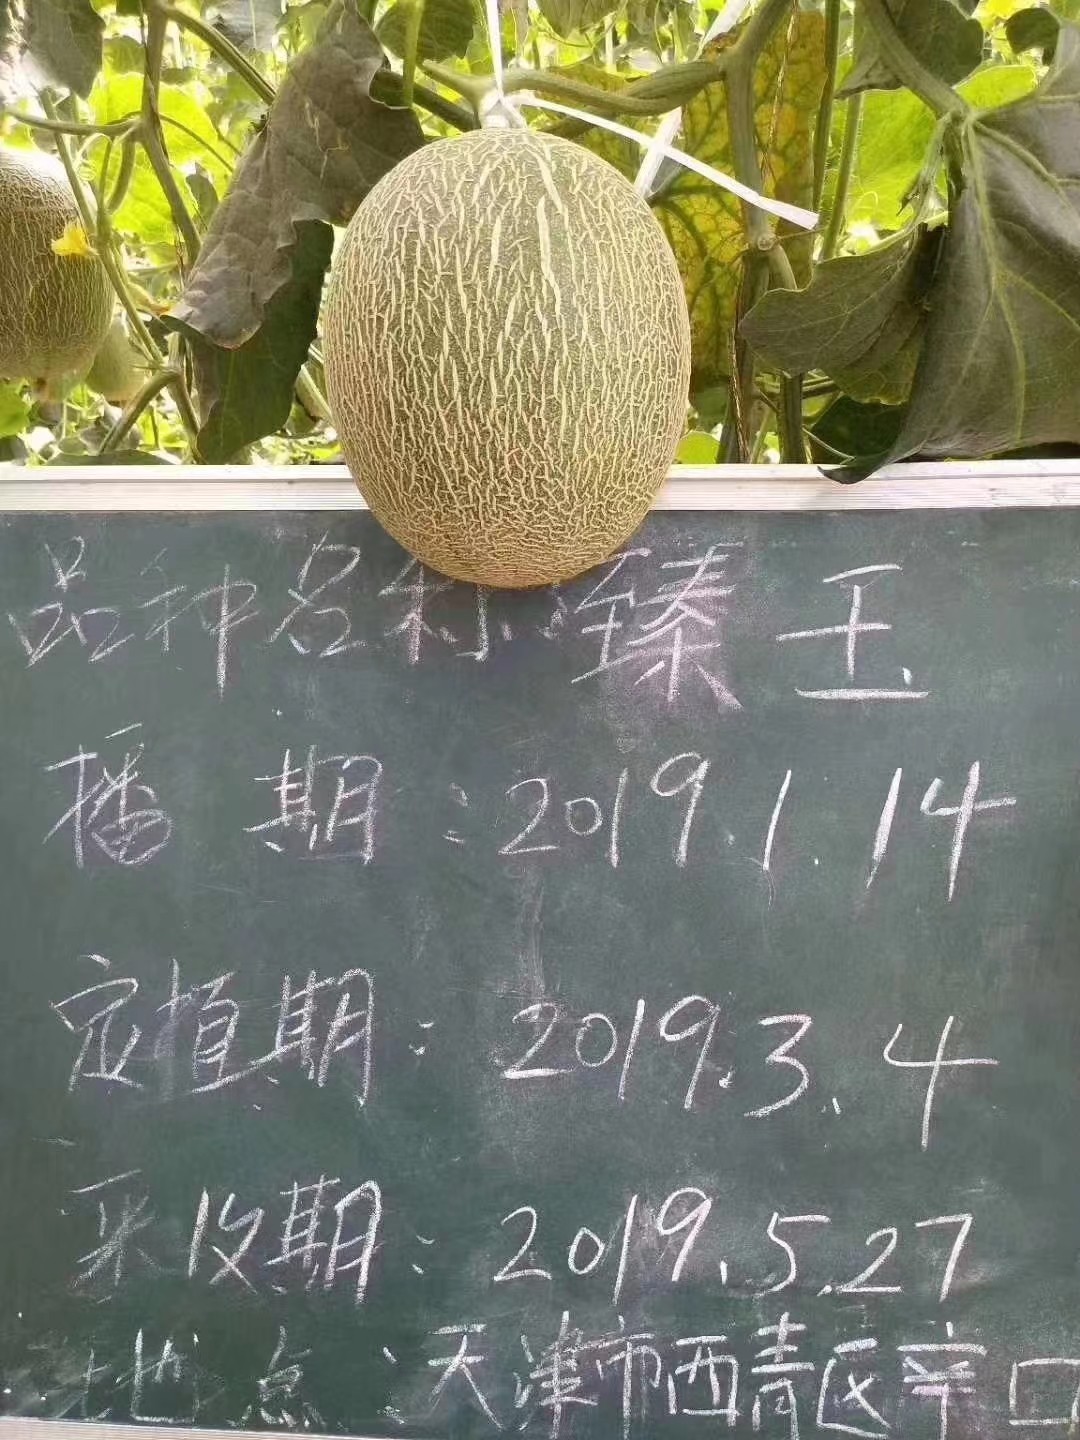 品种名称:臻玉
播 期:2019.1.14
定植期:2019.3.4
采收期:2019.5.27
地点:天津市西青区辛口